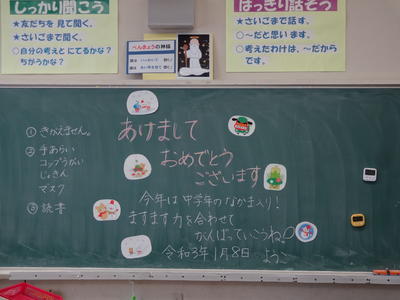 しっかり聞こう
★友だちを見て聞く。
★さいごまで聞く。
○自分の考えとにてるかな？
ちがうかな？
べんきょうの神様
はっきり話そう
★さいごまで話す。
○〜だと思います。
○考えたわけは、〜だから
です。
① きがえません。
② 手あらい
コップうがい
じょきん
マスク
③ 読書
あけまして
おめでとう
ございます
今年は中学年のなかま入り！
ますます力を合わせて
がんばっていこうね！
令和3年1月8日 ようこ